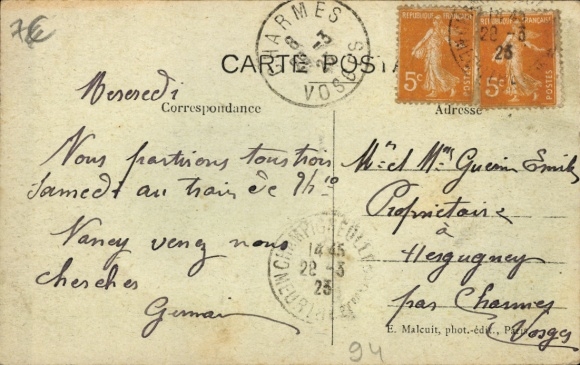 7€
CARTE POSTALE
CHARMES
VOSGES
28-3
23
REPUBLIQUE FRANÇAISE
5c
POSTES
REPUBLIQUE FRANÇAISE
5c
POSTES
28-3
23
Correspondance
Adresse
Mercredi
Nous partirons tous trois
Samedi au train de 9h10
Nancy venez nous
chercher
Germain
14 45
28-3
23
Mr et Mme Guerin Emile
Propriétaire
à
Hergugney
par Charmes
Vosges
E. Malcuit, phot.-édit., Paris
94